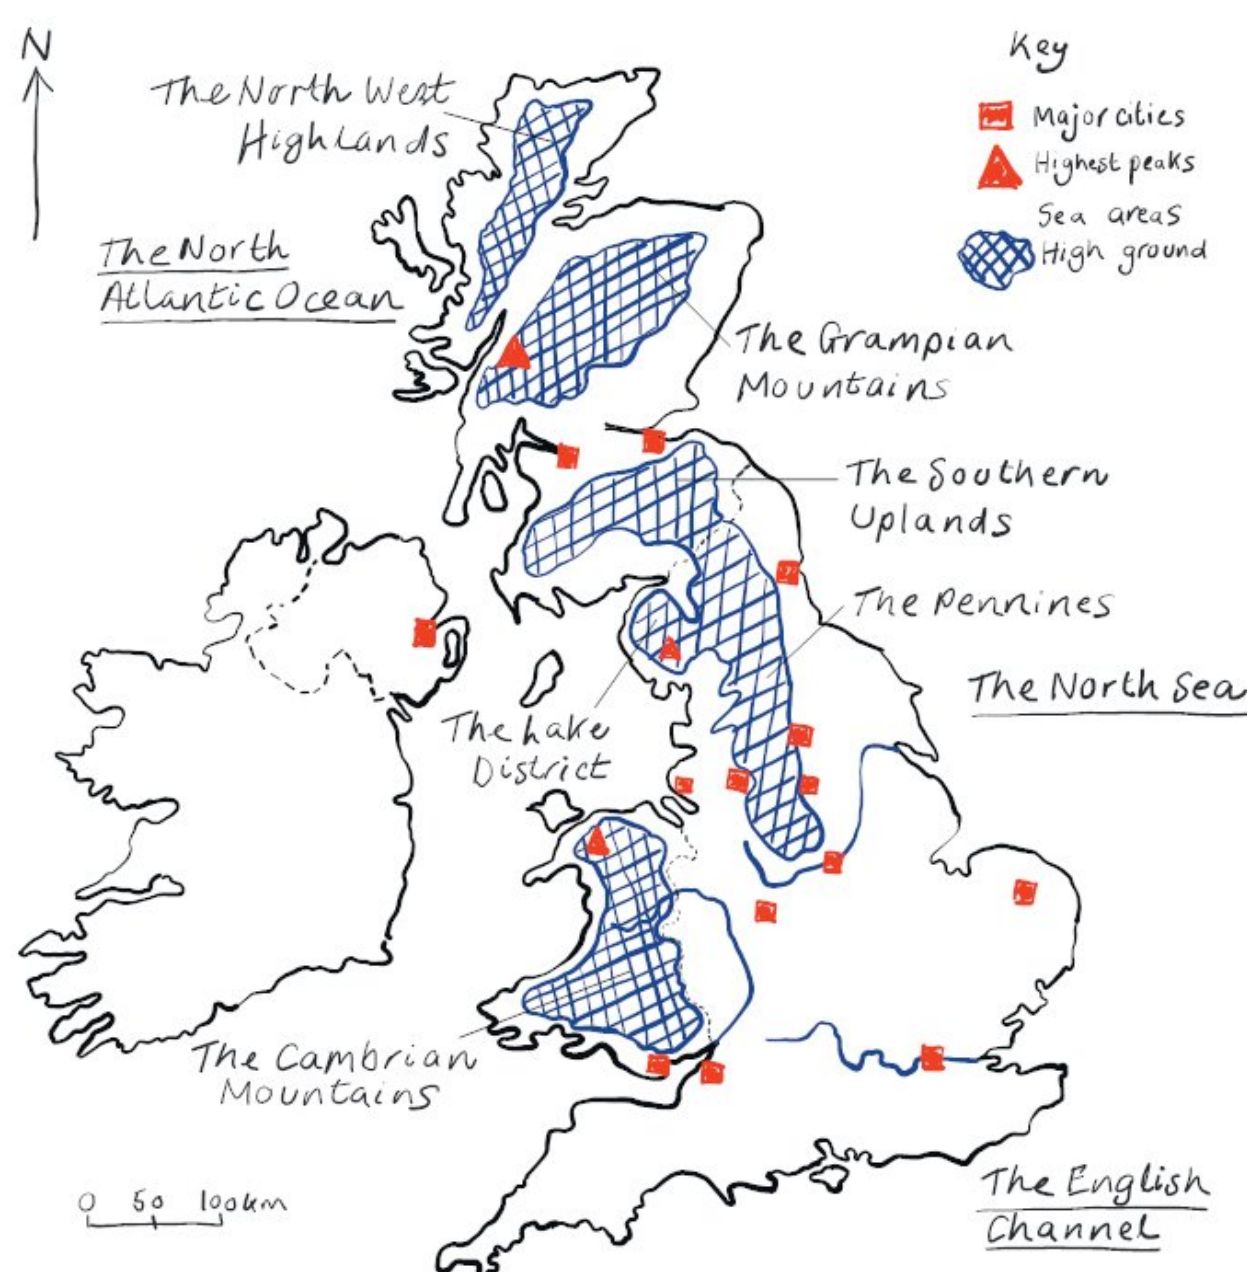 N
The North West
Highlands
Key
Major cities
Highest peaks
Sea areas
High ground
The North
Atlantic Ocean
The Grampian
Mountains
The Southern
Uplands
The Pennines
The North Sea
The Lake
District
The Cambrian
Mountains
0 50 100km
The English
Channel